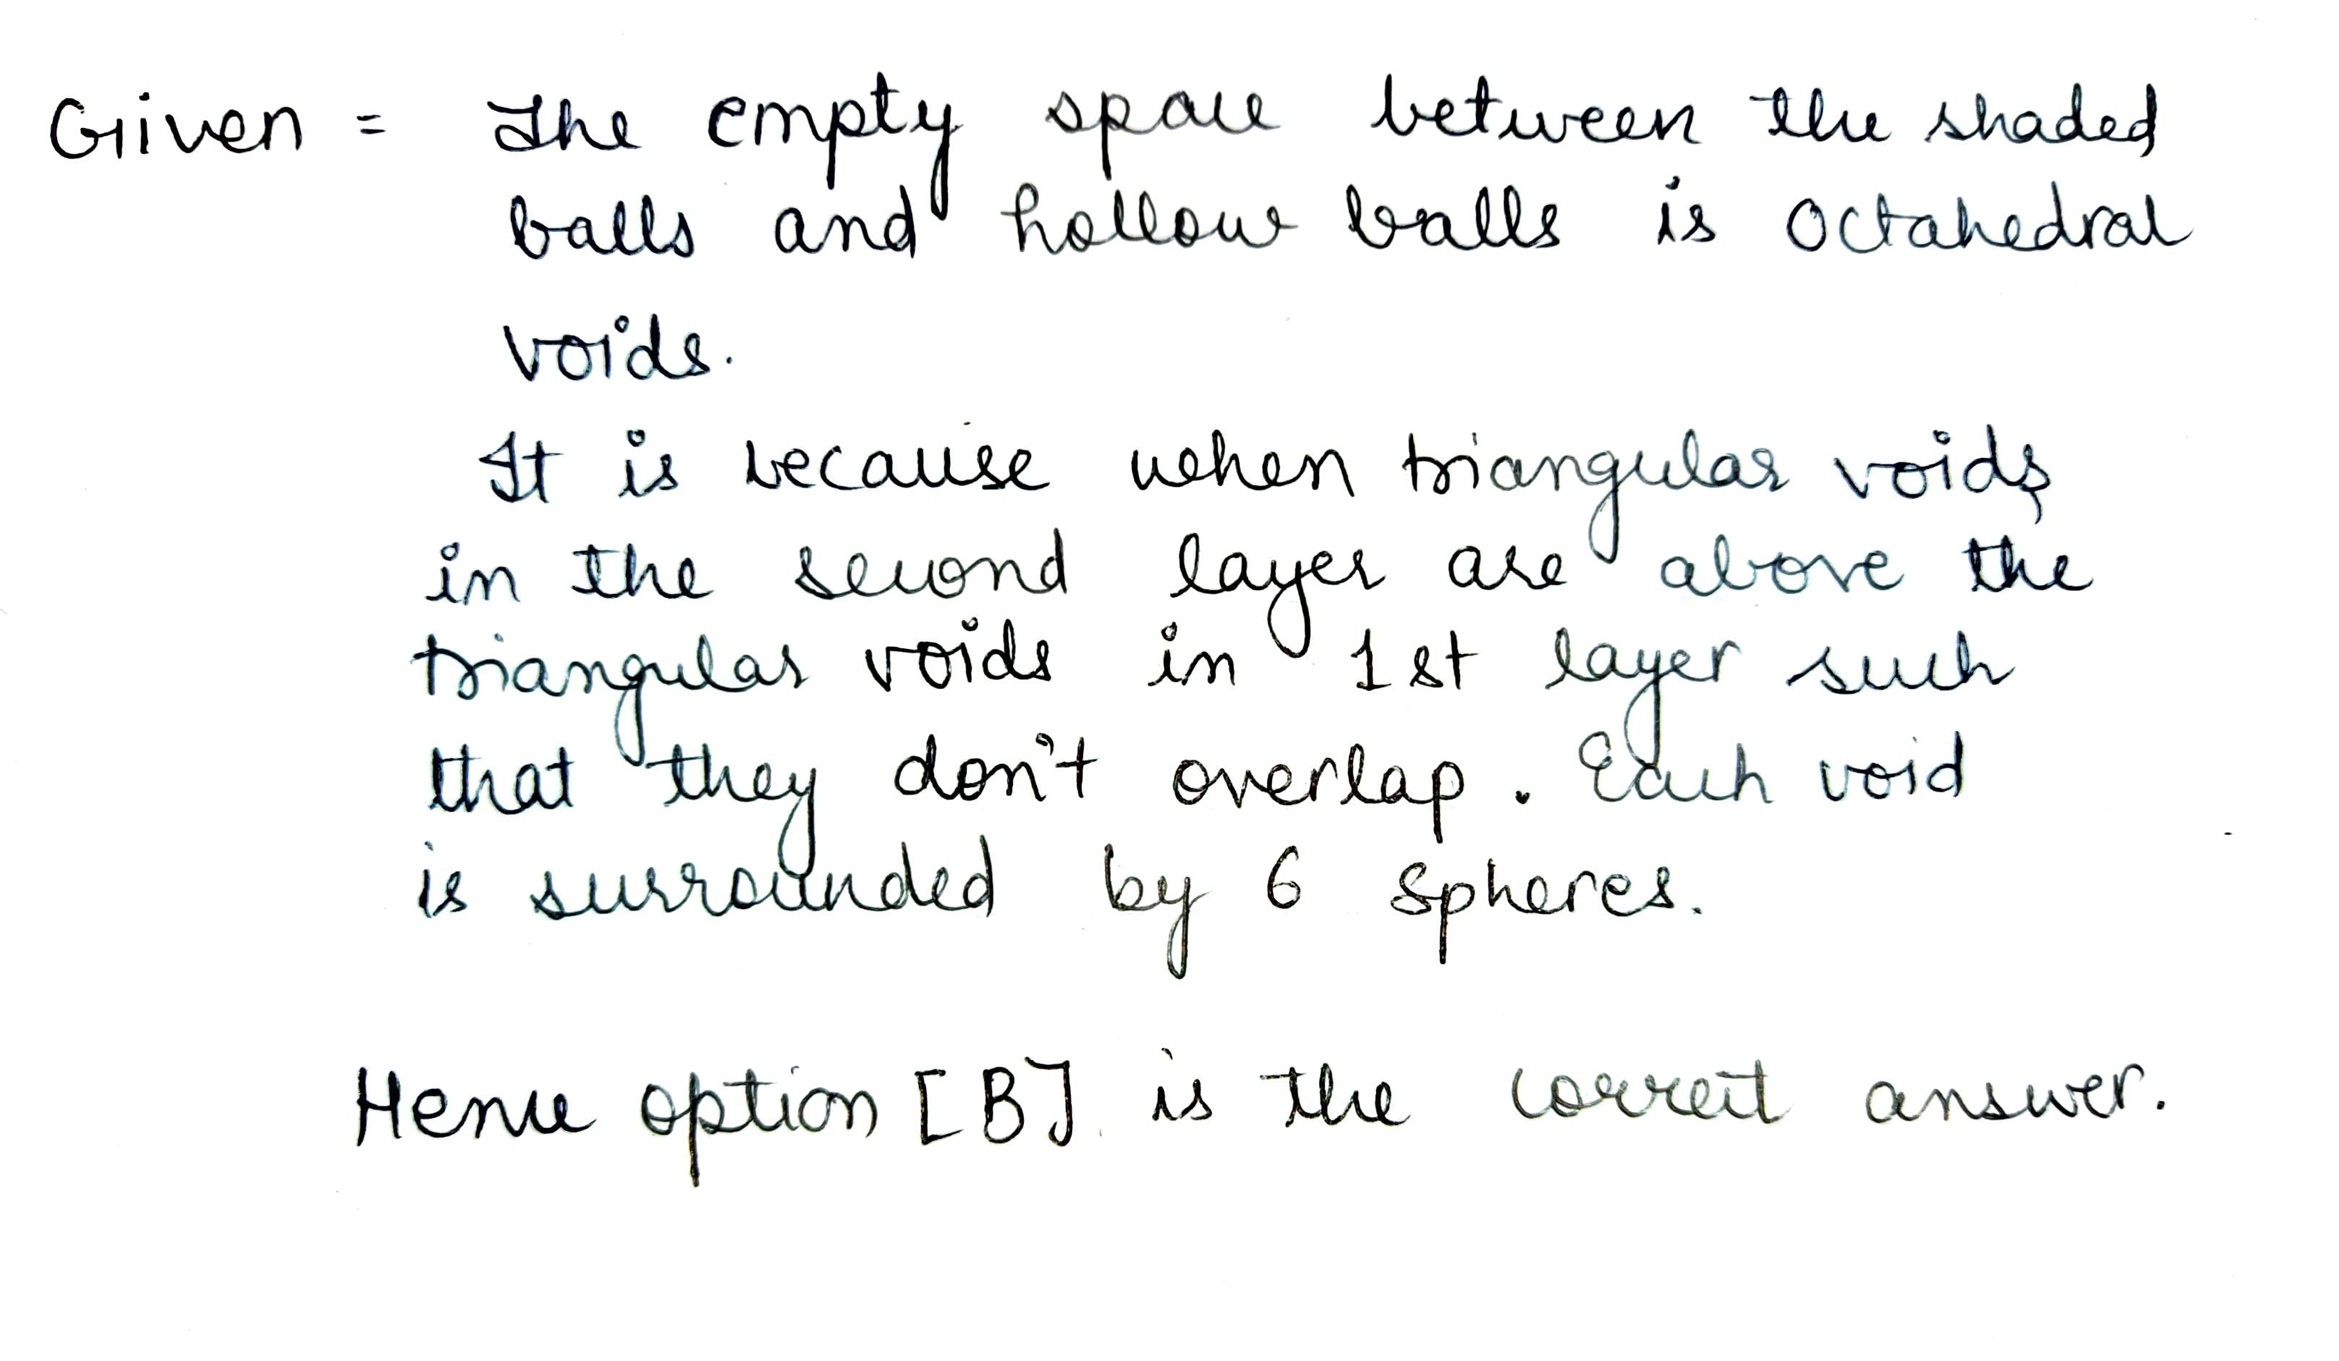 Given = The empty space between the shaded
balls and hollow balls is Octahedral
voids.
It is because when triangular voids
in the second layer are above the
triangular voids in 1st layer such
that they don't overlap. Each void
is surrounded by 6 spheres.
Hence option [B] is the correct answer.